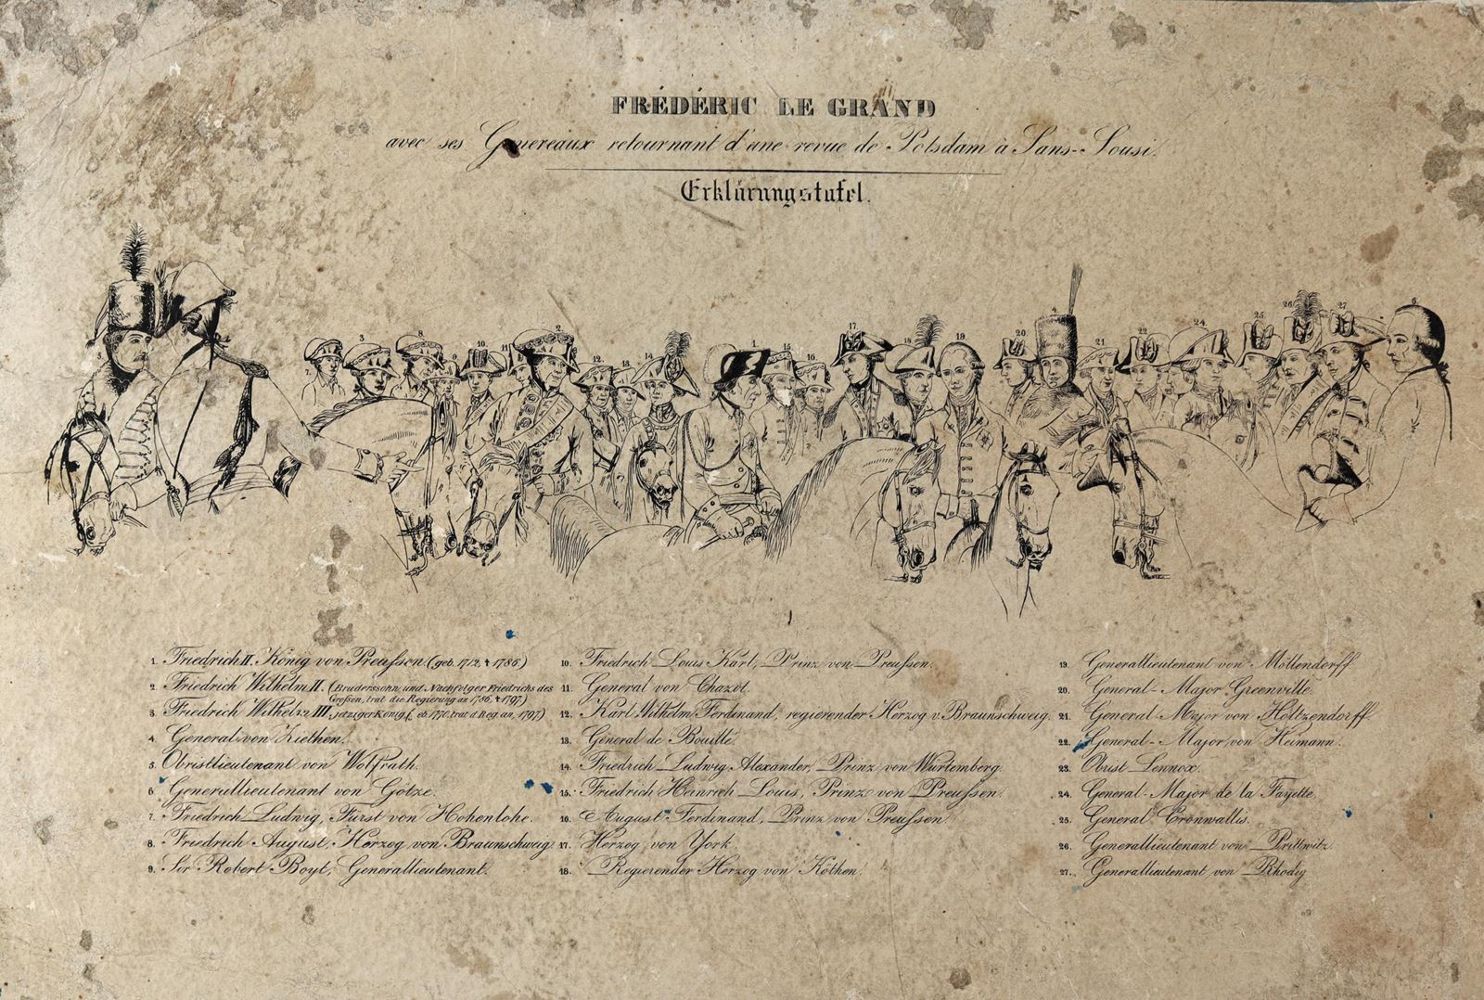 FRÉDÉRIC LE GRAND
avec ses Genereaux retournant d'une revue de Potsdam à Sans-Sousi.
Erklärungstafel.
1. Friedrich II. König von Preussen. (geb. 1712, † 1786)
2. Friedrich Wilhelm II. (Bruderssohn und Nachfolger Friedrichs des Großen, trat die Regierung an 1786, † 1797)
3. Friedrich Wilhelm III. jetziger König, (geb. 1770, trat d. Reg. an, 1797)
4. General von Ziethen.
5. Obristlieutenant von Wolfrath.
6. Generallieutenant von Götze.
7. Friedrich Ludwig, Fürst von Hohenlohe.
8. Friedrich August, Herzog von Braunschweig.
9. Sir Robert Boyt, Generallieutenant.
10. Friedrich Louis Karl, Prinz von Preussen.
11. General von Chazot.
12. Karl Wilhelm Ferdinand, regierender Herzog v. Braunschweig.
13. General de Bouillé.
14. Friedrich Ludwig Alexander, Prinz von Würtemberg.
15. Friedrich Heinrich Louis, Prinz von Preussen.
16. August Ferdinand, Prinz von Preussen.
17. Herzog von York.
18. Regierender Herzog von Köthen.
19. Generallieutenant von Möllendorff.
20. General-Major Greenville.
21. General-Major von Holtzendorff.
22. General-Major von Heimann.
23. Obrist Lennox.
24. General-Major de la Fayette.
25. General Cronwallis.
26. Generallieutenant von Prittwitz.
27. Generallieutenant von Rhodig